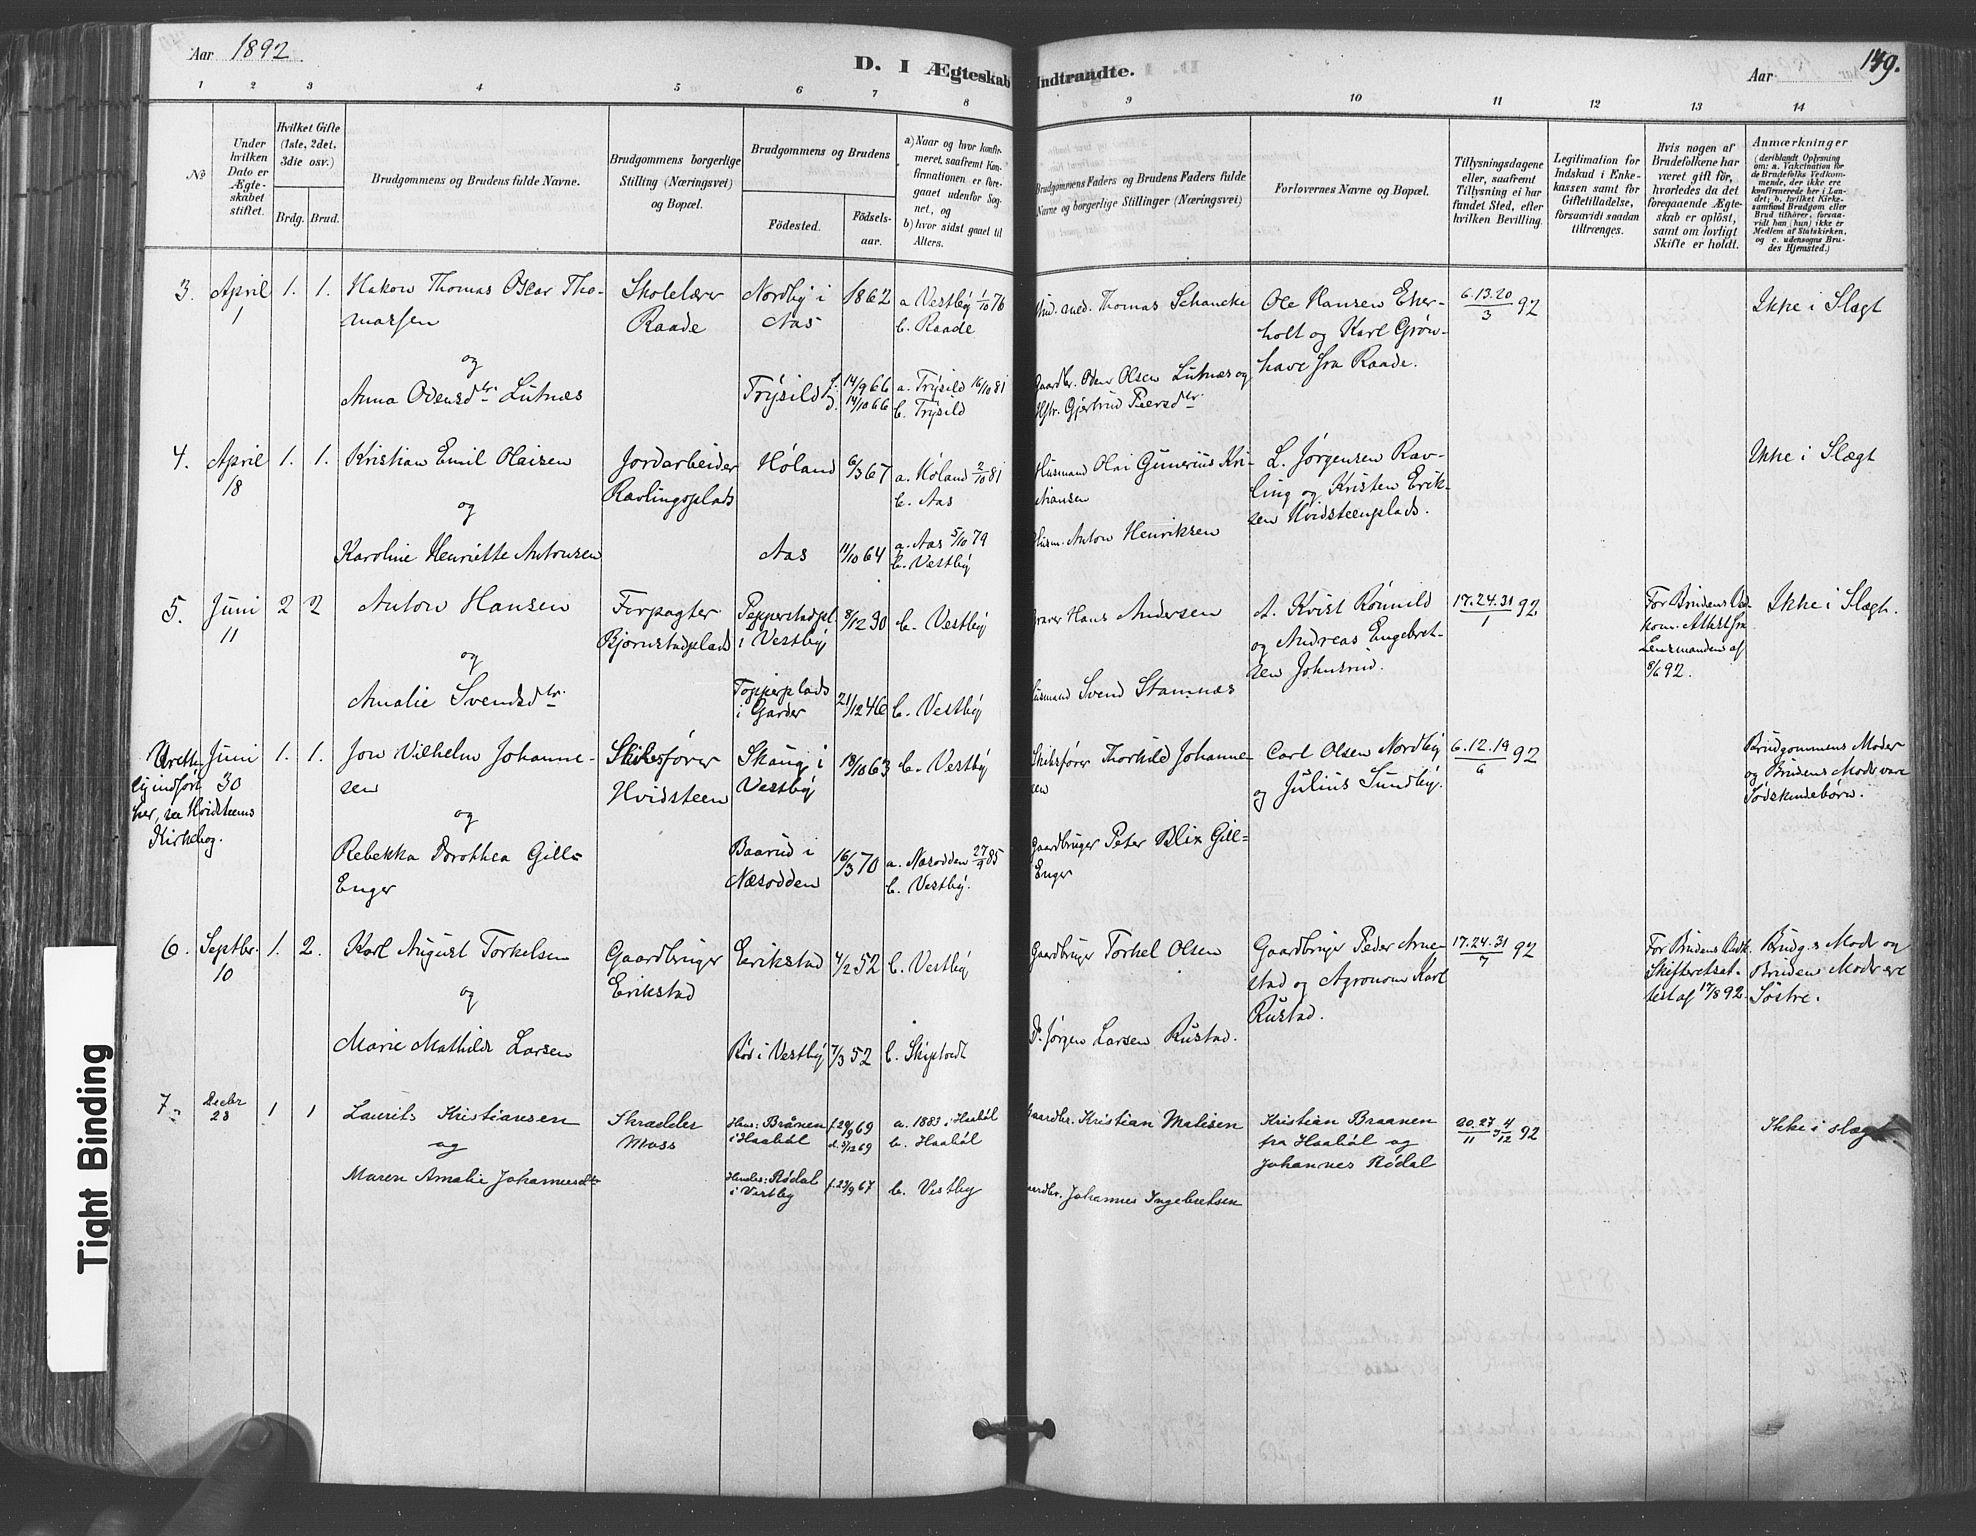 Aar 1892.
D. I Ægteskab Indtraadte.
Aar
149.
1 2 3 4 5 6 7 8 9 10 11 12 13 14
No
Under hvilken Dato er Ægteskabet stiftet.
Hvilket Gifte (1ste, 2det, 3die osv.)
Brdg. Brud.
Brudgommens og Brudens fulde Navne.
Brudgommens borgerlige Stilling (Næringsvei) og Bopæl.
Brudgommens og Brudens
Fødested.
Fødsels-aar.
a) Naar og hvor konfirmeret, saafremt Konfirmationen er foregaaet udenfor Sognet, og
b) hvor sidst gaaet til Alters.
Brudgommens Faders og Brudens Faders fulde Navne og borgerlige Stillinger (Næringsvei)
Forlovernes Navne og Bopæl.
Tillysningsdagene eller, saafremt Tillysning ei har fundet Sted, efter hvilken Bevilling.
Legitimation for Indskud i Enkekassen samt for Giftetilladelse, forsaavidt saadan tiltrænges.
Hvis nogen af Brudefolkene har været gift før, hvorledes da det foregaaende Ægteskab er opløst, samt om lovligt Skifte er holdt.
Anmærkninger
(deriblandt Oplysning om: a. Vakcination for de Brudefolks Vedkommende, der ikke ere konfirmerede her i Landet; b. hvilket Kirkesamfund Brudgom eller Brud tilhører, forsaavidt han (hun) ikke er Medlem af Statskirken, og c. udensogns Brudes Hjemsted.)
3. April 1 1. 1. Hakon Thomas Oscar Thomassen
Skolelærer Raade
Nordby i Aas 1862
a Vestby 1/10 76
b. Raade
Stud. med. Thomas Schancke
Ole Hansen Ekerholt og Karl Grønhave fra Raade.
6.13.20/3 92
Ikke i Slægt
og
Anna Odensdtr Lutnæs
Trysild f. 14/9 66 d. 14/10 66
a. Trysild 16/10 81
b. Trysild
Gaardbr. Oden Olsen Lutnæs og Hstr. Gjertrud Peersdtr
4. April 18 1. 1. Kristian Emil Olaisen
Jordarbeider Ravlingsplads
Høland 6/3 67
a. Høland 2/10 81
b. Aas
Husmand Olai Gunerius Kristiansen
L. Jørgensen Ravling og Kristen Eriksen Hvidsteenplads.
Ikke i Slægt
og
Karoline Henriette Antonsen
Aas 11/10 64
a. Aas 5/10 79
b. Vestby
Husm. Anton Henriksen
5. Juni 11 2 2 Anton Hansen
Forpagter Bjørnstadplads
Pepperstadpl. i Vestby 8/12 30
b. Vestby
Graver Hans Andersen
A. Kvist Rønnild og Andreas Engebretsen Johnsrud.
17.24.31/1 92
For Brudens Vedkom. Attest fra Lensmanden af 8/6 92.
Ikke i Slægt.
og
Amalie Svendsdtr.
Topperplads i Garder 21/12 46
b. Vestby
Husmand Svend Stamnæs
Urettelig indført her, se Hvidsteens Kirkebog.
Juni 30 1. 1. Jon Vilhelm Johannesen
Skibsfører Hvidsteen
Skaug i Vestby 18/10 63
b. Vestby
Skibsfører Thorkild Johannesen
Carl Olsen Nordby og Julius Sundby.
6.12.19/6 92
Brudgommens Moder og Brudens Moder vare Sødskendebørn.
og
Rebekka Dorothea Gill-Enger
Baarud i Næsodden 16/3 70
a. Næsodden 27/9 85
b. Vestby.
Gaardbruger Peter Blix Gill-Enger
6. Septbr. 10 1. 2. Karl August Torkelsen
Gaardbruger Erikstad
Erikstad 4/2 52
b. Vestby
Gaardbruger Torkel Olsen
Gaardbruger Peder Arnestad og Agronom Karl Rustad.
17.24.31/7 92
For Brudens Vedk. Skifteretsattest af 17/8 92.
Brudg.s Moder og Brudens Moder ere Søstre.
og
Marie Mathilde Larsen
Rød i Vestby 7/3 52
b. Skiptvedt
Jørgen Larsen Rustad.
7. Decbr 28 1 1 Laurits Kristiansen
Skrædder Moss
Hans: Brånen i Haabøl f. 29/9 69 d. 5/12 69
a. 1883 i Haabøl
b. Haabøl
Gaardbr. Kristian Matisen
Kristian Braanen fra Haabøl og Johannes Rødal
20.27/11 & 4/12 92
Ikke i slægt
og
Maren Amalie Johannesdtr
Hendes: Rødal i Vestby f. 23/9 67
b. Vestby
Gaardbr. Johannes Ingebretsen
Tight Binding